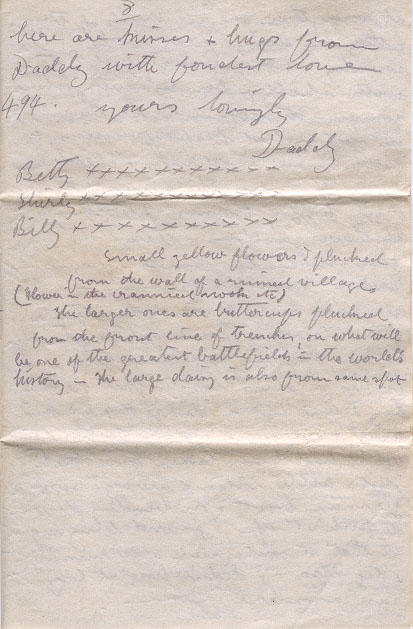 3
here are kisses + hugs from
Daddy with fondest love
494. yours lovingly
Daddy
Betty xxxxxxxxxxx
Shirley xxxxxxxxxxx
Billy xxxxxxxxxxx
Small yellow flowers I plucked
from the wall of a ruined village
(Flower in the crannied nooks etc)
The larger ones are buttercups plucked
from the front line of trenches, on what will
be one of the greatest battlefields in the world's
history - The large daisy is also from same spot